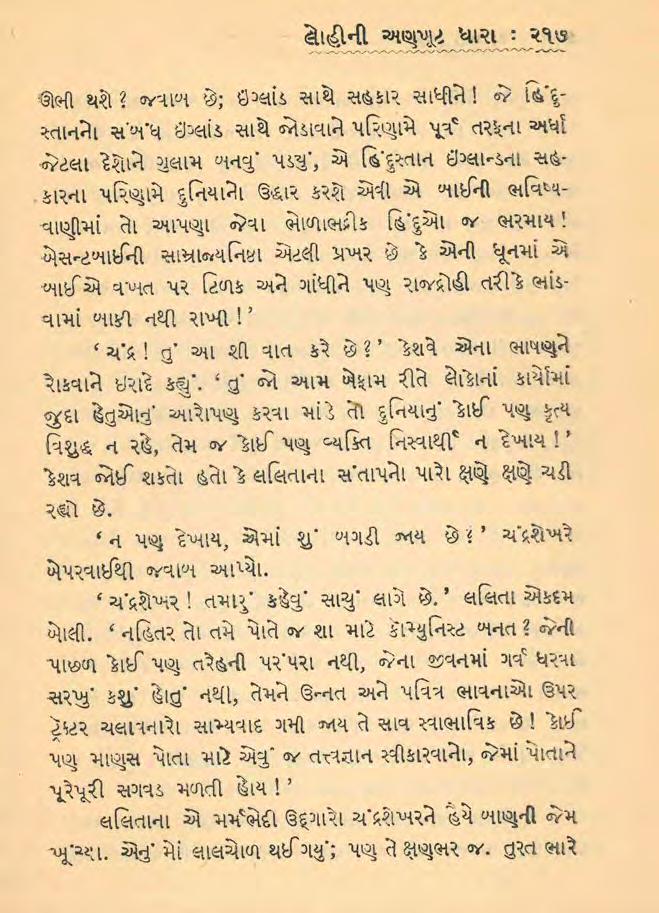 લોહીની અણખૂટ ધારા : ૨૧૭
ઊભી થશે ? જવાબ છે; ઇંગ્લાંડ સાથે સહકાર સાધીને ! જે હિંદુ-
સ્તાનનો સંબંધ ઇંગ્લાંડ સાથે જોડાવાને પરિણામે પૂર્વ તરફના અર્ધા
જેટલા દેશોને ગુલામ બનવું પડયું, એ હિંદુસ્તાન ઇંગ્લાન્ડના સહ-
કારના પરિણામે દુનિયાનો ઉદ્ધાર કરશે એવી એ બાઈની ભવિષ્ય-
વાણીમાં તો આપણા જેવા ભોળાભદ્રીક હિંદુઓ જ ભરમાય !
બેસન્ટબાઈની સામ્રાજ્યનિષ્ઠા એટલી પ્રખર છે કે એની ધૂનમાં એ
બાઈએ વખત પર ટિળક અને ગાંધીને પણ રાજદ્રોહી તરીકે ભાંડ-
વામાં બાકી નથી રાખી !’
‘ચંદ્ર ! તું આ શી વાત કરે છે ?’ કેશવે એના ભાષણને
રોકવાને ઇરાદે કહ્યું. ‘તું જો આમ બેફામ રીતે લોકોનાં કાર્યોમાં
જુદા હેતુઓનું આરોપણ કરવા માંડે તો દુનિયાનું કોઈ પણ કૃત્ય
વિશુદ્ધ ન રહે, તેમ જ કોઈ પણ વ્યક્તિ નિસ્વાર્થી ન દેખાય !’
કેશવ જોઈ શકતો હતો કે લલિતાના સંતાપનો પારો ક્ષણે ક્ષણે ચડી
રહ્યો છે.
‘ન પણ દેખાય, એમાં શું બગડી જાય છે ?’ ચંદ્રશેખરે
બેપરવાઈથી જવાબ આપ્યો.
‘ચંદ્રશેખર ! તમારું કહેવું સાચું લાગે છે.’ લલિતા એકદમ
બોલી. ‘નહિતર તો તમે પોતે જ શા માટે કૉમ્યુનિસ્ટ બનત ? જેની
પાછળ કોઈ પણ તરેહની પરંપરા નથી, જેના જીવનમાં ગર્વ ધરવા
સરખું કશું હોતું નથી, તેમને ઉન્નત અને પવિત્ર ભાવનાઓ ઉપર
ટ્રેક્ટર ચલાવનારો સામ્યવાદ ગમી જાય તે સાવ સ્વાભાવિક છે ! કોઈ
પણ માણસ પોતા માટે એવું જ તત્ત્વજ્ઞાન સ્વીકારવાનો, જેમાં પોતાને
પૂરેપૂરી સગવડ મળતી હોય !’
લલિતાના એ મર્મભેદી ઉદ્ગારો ચંદ્રશેખરને હૈયે બાણની જેમ
ખૂંચ્યા. એનું મોં લાલચોળ થઈ ગયું; પણ તે ક્ષણભર જ. તુરત ભારે